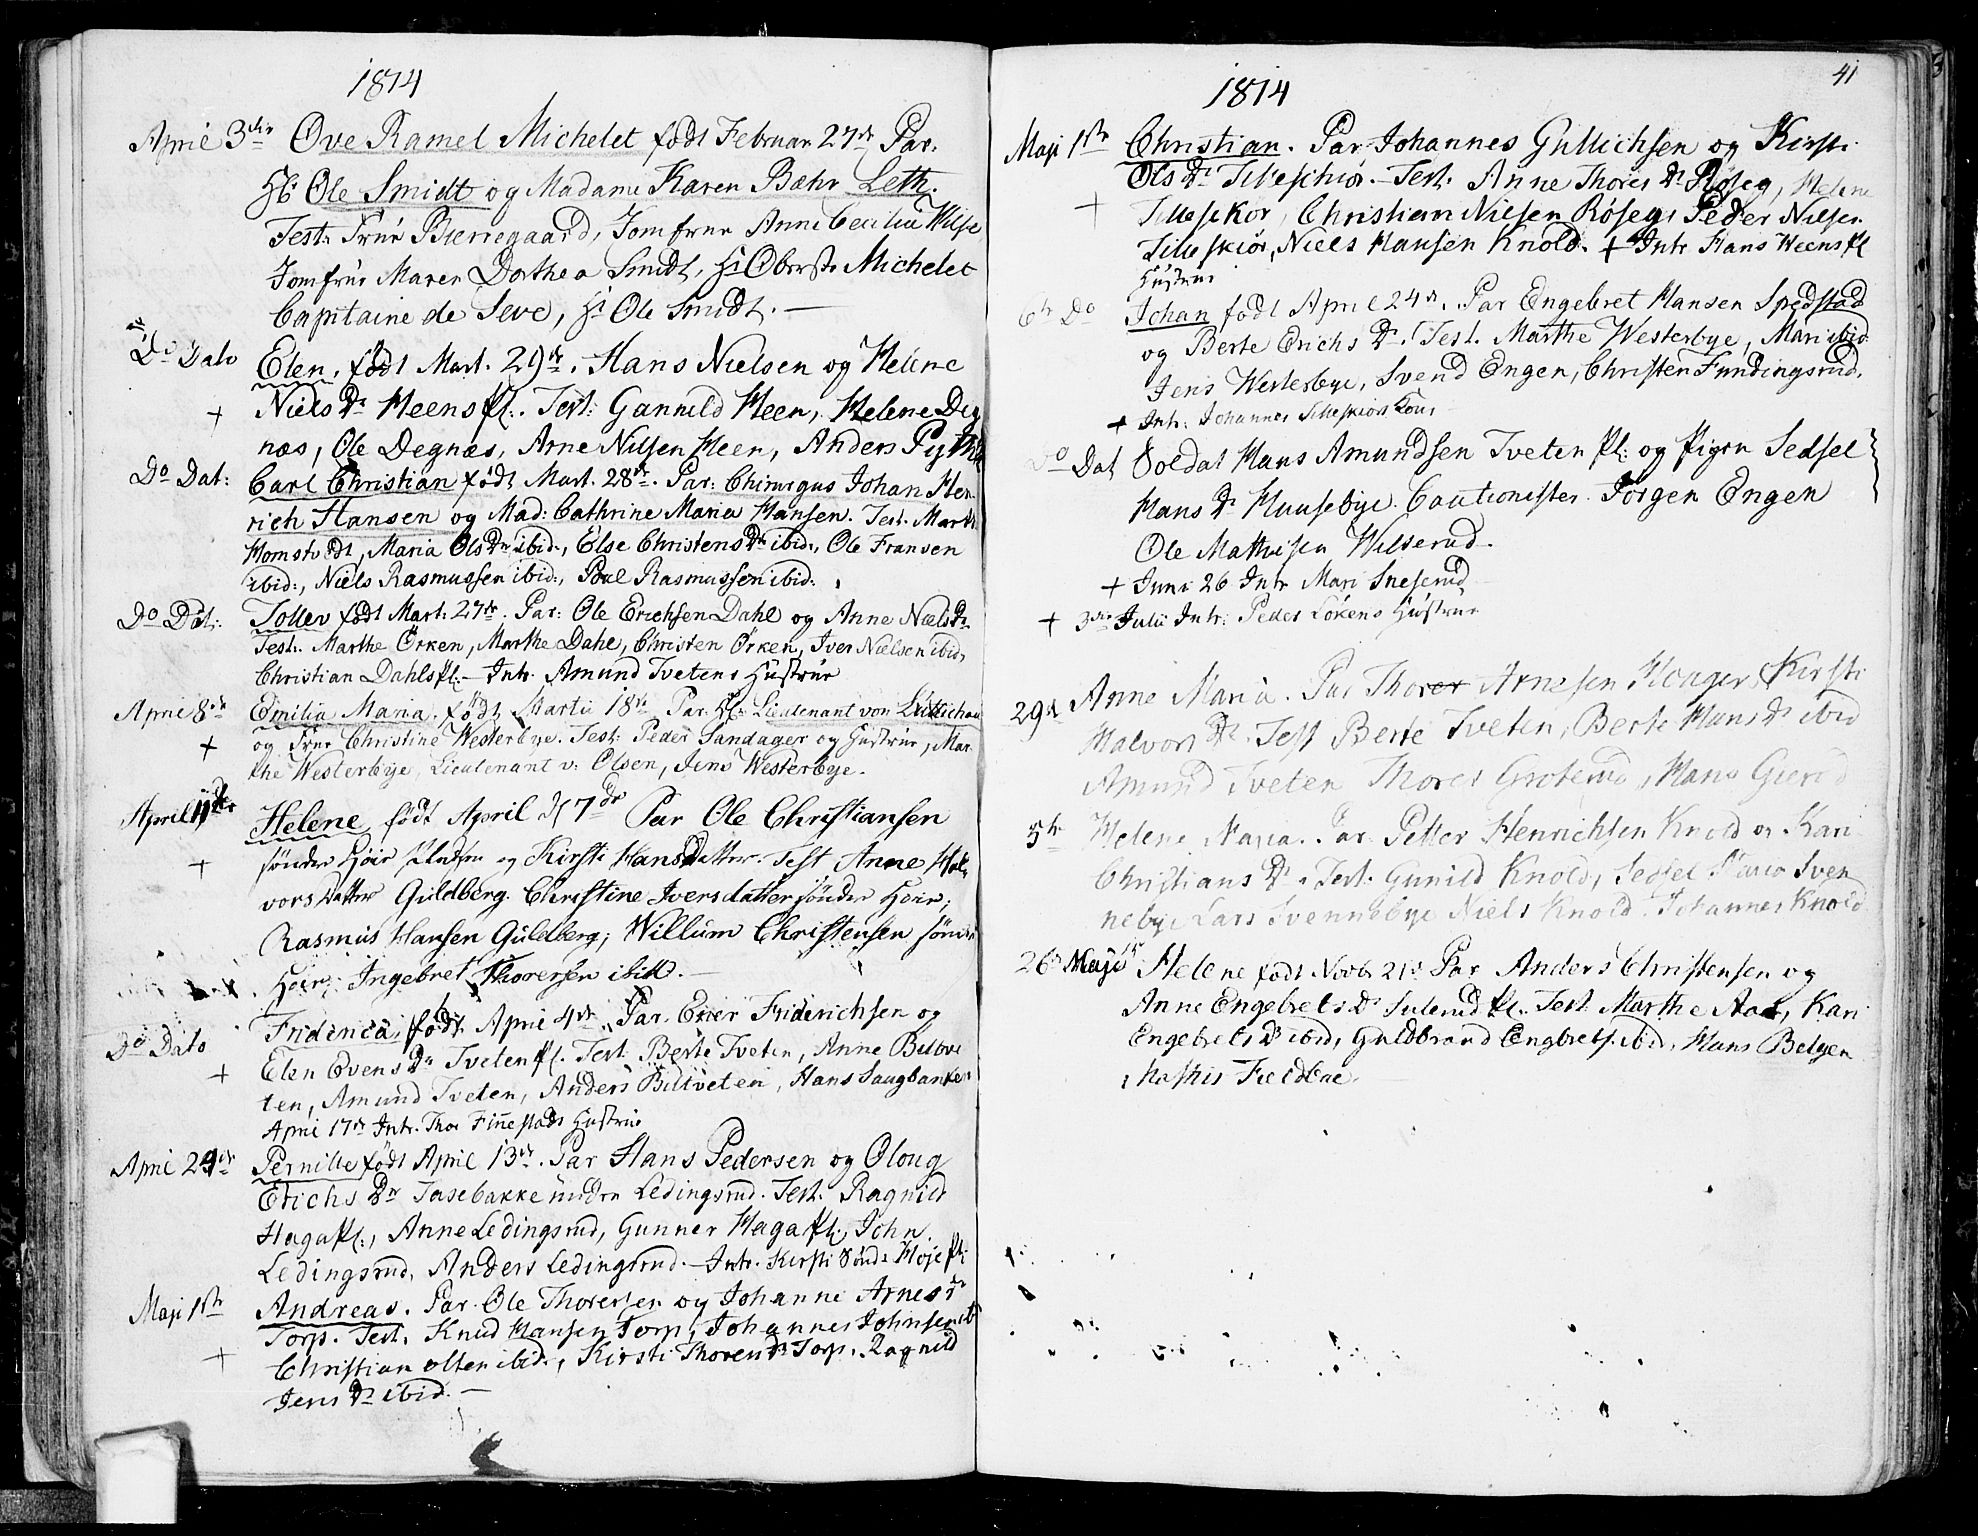 1814
April 3die Ove Ramel Michelet födt Februar 27de Par.
Hr Ole Smidt og Madame Karen Bæhr Leth.
Test: Frue Bierregaard, Jomfrue Anne Cecilia Wilse
Jomfrue Maren Dorthea Smidt, Hr Oberst Michelet
Capitaine de Seve, Hr Ole Smidt. —
Do Dato Elen, födt Mart. 29de. Hans Nielsen og Helene
+ Niels Dr Heens Pl. Test: Gunnild Heen, Helene Deg
næs, Ole Degnæs, Arne Nilsen Heen, Anders
Do Dat: Carl Christian födt Mart. 28de. Par: Chirurgus Johan Hen
rich Hansen og Mad: Cathrine Maria Hansen. Test. Marth.
Homstvedt, Maria Ols Dr ibid., Else Christens Dr ibid., Ole Fransen
ibid:, Niels Rasmussen ibid:, Poul Rasmussen ibid:
Do Dat: Tollev födt Mart: 27de. Par: Ole Erichsen Dahl og Anne Niels Dr
Test. Marthe Örken, Marthe Dahl, Christen Örken, Iver Nielsen ibid,
Christian Dahls Pl. — Intr. Amund Tvetens Hustrue
April 8de Emilia Maria. födt Martii 18de Par. Hr Lieutenant von Lüttichau
+ og Frue Christine Westerbye. Test: Peder Sandager og Hustrue, Mar
the Westerbye, Lieutenant v: Olsen, Jens Westerbye.
April 11te Helene födt April d 7de Par Ole Christiansen
+ sönder Höie og Kirsti Hansdatter. Test Anne Hal
vorsdatter Guldberg. Christine Iversdatter sönder Höie,
Rasmus Hansen Guldberg; Willum Christensen sönder
Höie; Ingebret Thoresen ibid. —
Do Dato Friderica, födt April 4de Par. Friderichsen og
+ Elen Evens Dr Tveten Pl. Test. Berte Tveten, Anne Biltve
ten, Amund Tveten, Anders Biltveten, Hans Saugbanken
April 17de Intr. Thor Finnestads Hustrue
April 24de Pernille födt April 13de. Par Hans Pedersen og Oloug
Erichs Dr Tasebakke under Ledingsrud. Test. Ragnild
Haga Pl., Anne Ledingsrud, Gunner Haga Pl., John
Ledingsrud, Anders Ledingsrud. — Intr. Kirsti Sönd: Höje Pl:
Maji 1ste Andreas. Par. Ole Thoresen og Johanne Arnes Dr
Torp. Test. Knud Hansen Torp, Johannes Johnsen ib
+ Christian Olsen ibid., Kirsti Thorens Dr Torp. Ragnild
Jens Dr ibid. —
41
1814
Maji 1ste Christian. Par. Johannes Gullichsen og Kirsti
Ols Dr Tilleskiör. Test. Anne Thores Dr Röseg, Helene
+ Tilleskor, Christian Nilsen Röseg, Peder Nilsen
Tilleskiör, Niels Hansen Knold. + Intr. Hans Heens Pl
Hustrue
6te Do Johan födt April 24de. Par Engebret Hansen Spedstad
og Berte Erichs Dr. Test. Marthe Westerbye, Mari ibid
Jens Westerbye, Svend Engen, Christen Fundingsrud.
+ Intr: Johannes Tilleskiörs Kone
Do Dat Soldat Hans Amundsen Tveten Pl: og Pigen Sedsel
Hans Dr Huusebye. Cautionister Jörgen Engen
Ole Mathisen Wilserud.
+ Juni 26 Intr Mari Sneserud
+ 3die Julii Intr: Peder Lökens Hustrue
29de Anne Maria. Par Thorer Arnesen Kirsti
Halvors Dr. Test Berte Tveten, Berte Hans Dr ibid
Amund Tveten Thores Groterud, Hans
5te Helene Maria. Par. Petter Henrichsen Knold og Kari
Christians Dr. Test. Gunild Knold, Sedsel Maria Sven
nebye Lars Svennebye Niels Knold. Johannes Knold
26de Maji Helene födt Novbr 21de Par Anders Christensen og
Anne Engebrets Dr Sulerud Pl. Test Marthe Aas, Kari
Engebrets Dr ibid, Guldbrand Engebrets. ibid, Hans Belgen
Mathis Fieldbae.